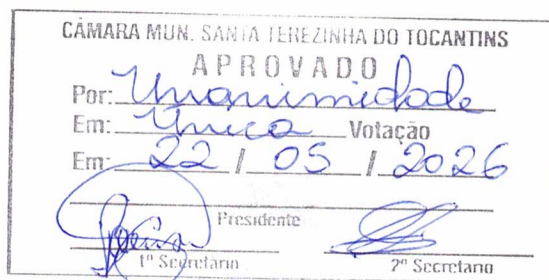 CÂMARA MUN. SANTA TEREZINHA DO TOCANTINS
APROVADO
Por: Unanimidade
Em: Única Votação
Em: 22 / 05 / 2026
Presidente
1º Secretario 2º Secretario